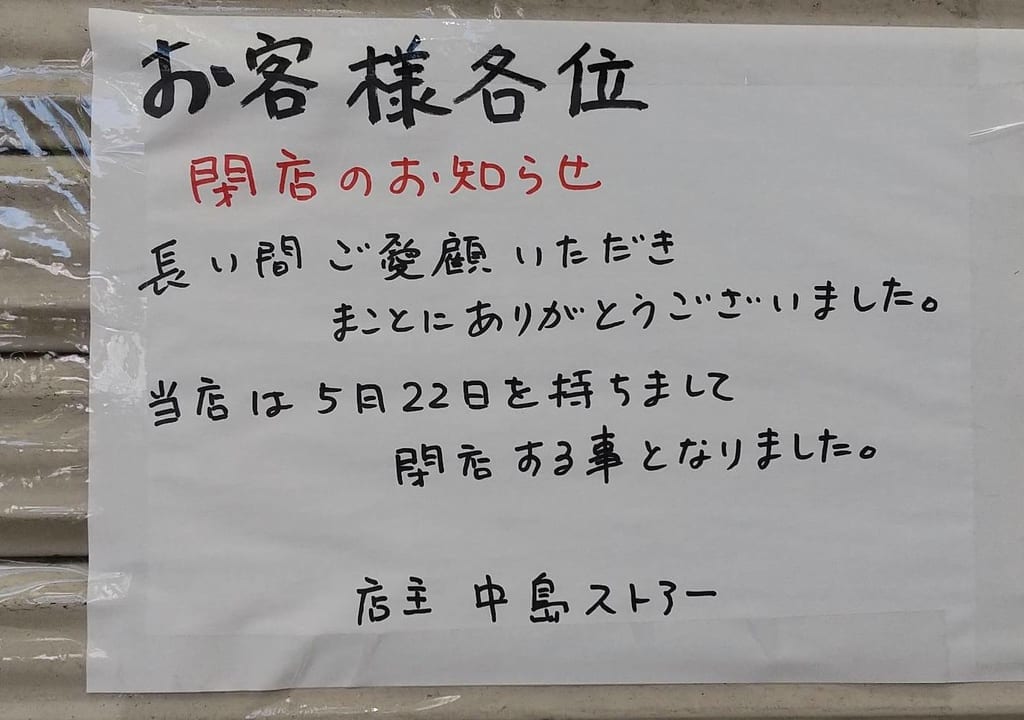 お客様各位
閉店のお知らせ
長い間ご愛顧いただき
まことにありがとうございました。
当店は5月22日を持ちまして
閉店する事となりました。
店主 中島ストアー